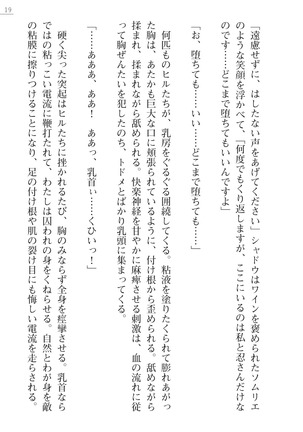 19
「遠慮せずに、はしたない声をあげてください」シャドウはワインを褒められたソムリエ
のような笑顔を浮かべて、「何度でもくり返しますが、ここにいるのは私と忍さんだけな
んです。どこまで堕ちてもいいんですよ」
「お、堕ちても……いい……どこまで堕ちても……」
何匹ものヒルたちが、乳房をぐるぐる囲繞してくる。粘液を塗りたくられて膨れあがっ
た胸は、あたかも巨大な口に頬張られているように、付け根から荒々しく揉み込まれる。
揉まれ、揉まれながら舐められる。快楽神経を甘やかに麻痺させる刺激は、血の流れに従
って胸ぜんたいを犯したのち、トドメとばかり乳頭に集まってくる。
「……あああ、ああ！　ああっ、乳首ぃ……くひいっ！」
硬く尖った突起はヒルたちに挫かれるたび、胸のみならず全身を痙攣させる。乳首なら
ではの粘っこい電流に鞭打たれて、わたしは囚われの身をくねらせる。自然とわが身がそ
の粘膜に擦りつけることになり、足の付け根や肌の裂け目にも悔しい電流を走らされる。